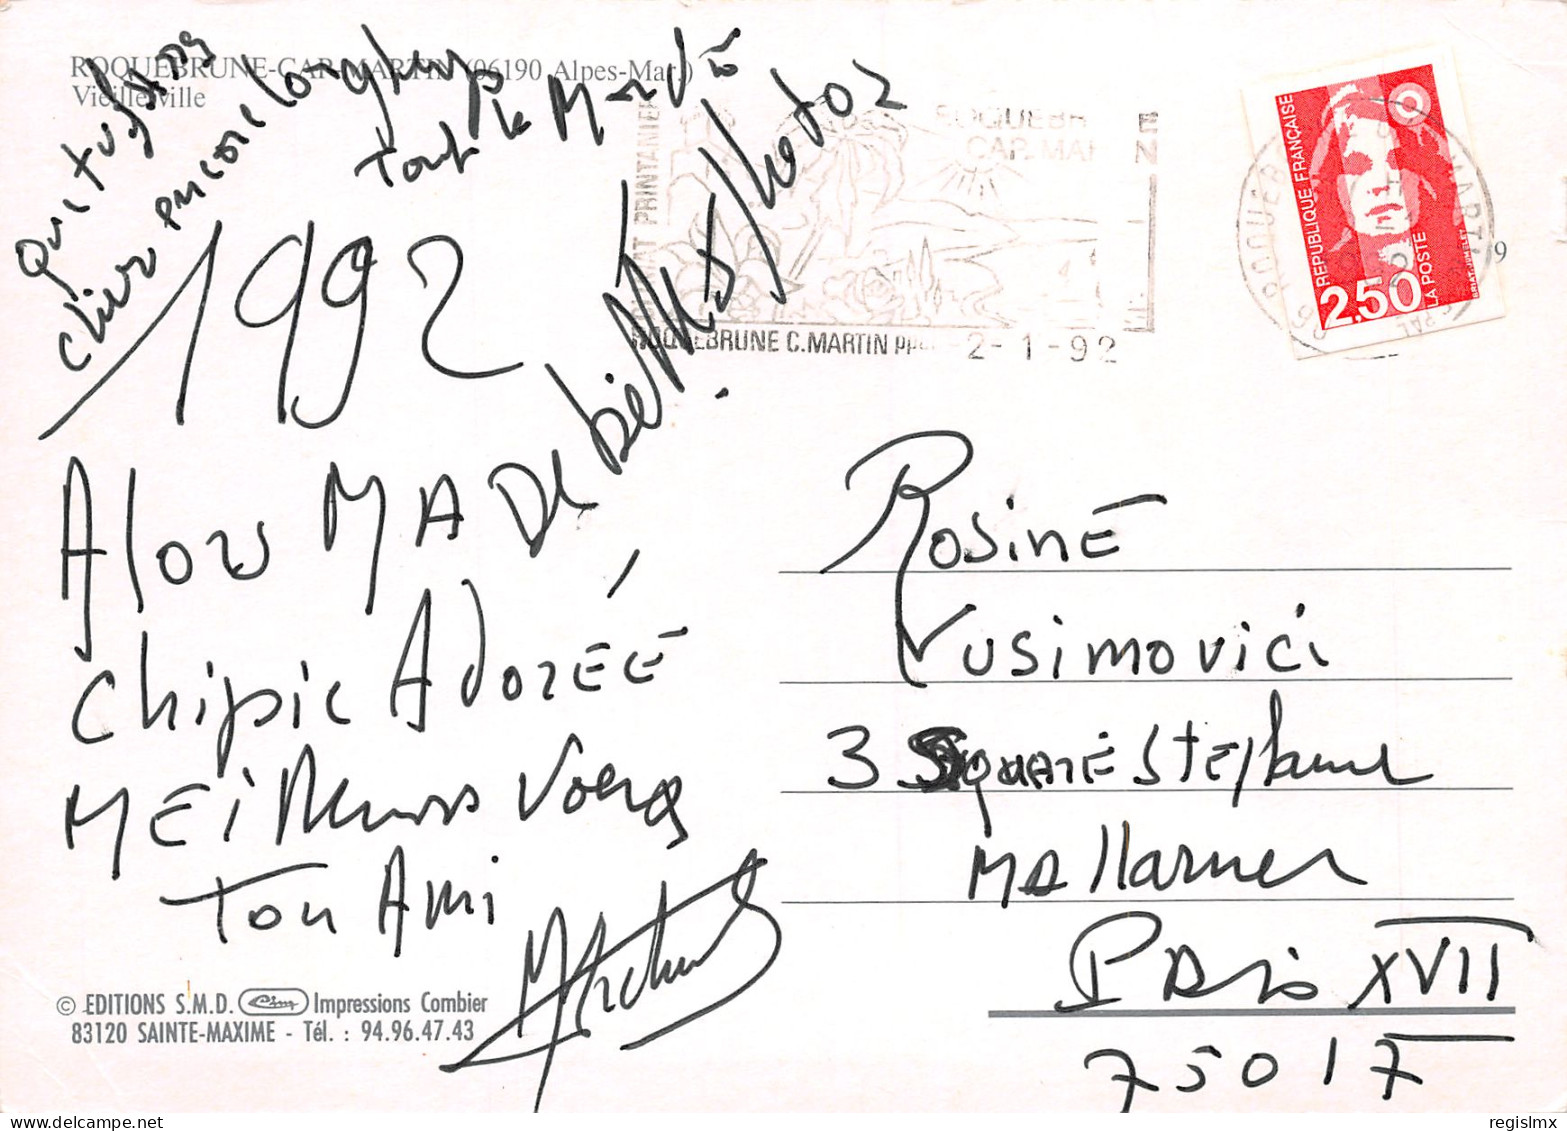 ROQUEBRUNE-CAP-MARTIN (06190 Alpes-Mar.)
Vieille ville
Que tu fasses
chier encore longtemps
tout le Monde
1992
Alors MA De bièTRES photos
Chipie Adorée
MEillEurs Voeux
Ton Ami
ROQUEBRUNE
CAP. MARTIN
CLIMAT PRINTANIER
ROQUEBRUNE C.MARTIN PPAL
-2-1-92
RÉPUBLIQUE FRANÇAISE
2,50
LA POSTE
9
Rosine
Vusimovici
3 SquARE Stephane
MAllarmer
PARis XVII
75017
© EDITIONS S.M.D. Cim Impressions Combier
83120 SAINTE-MAXIME - Tél. : 94.96.47.43
regislmx
delcampe.net